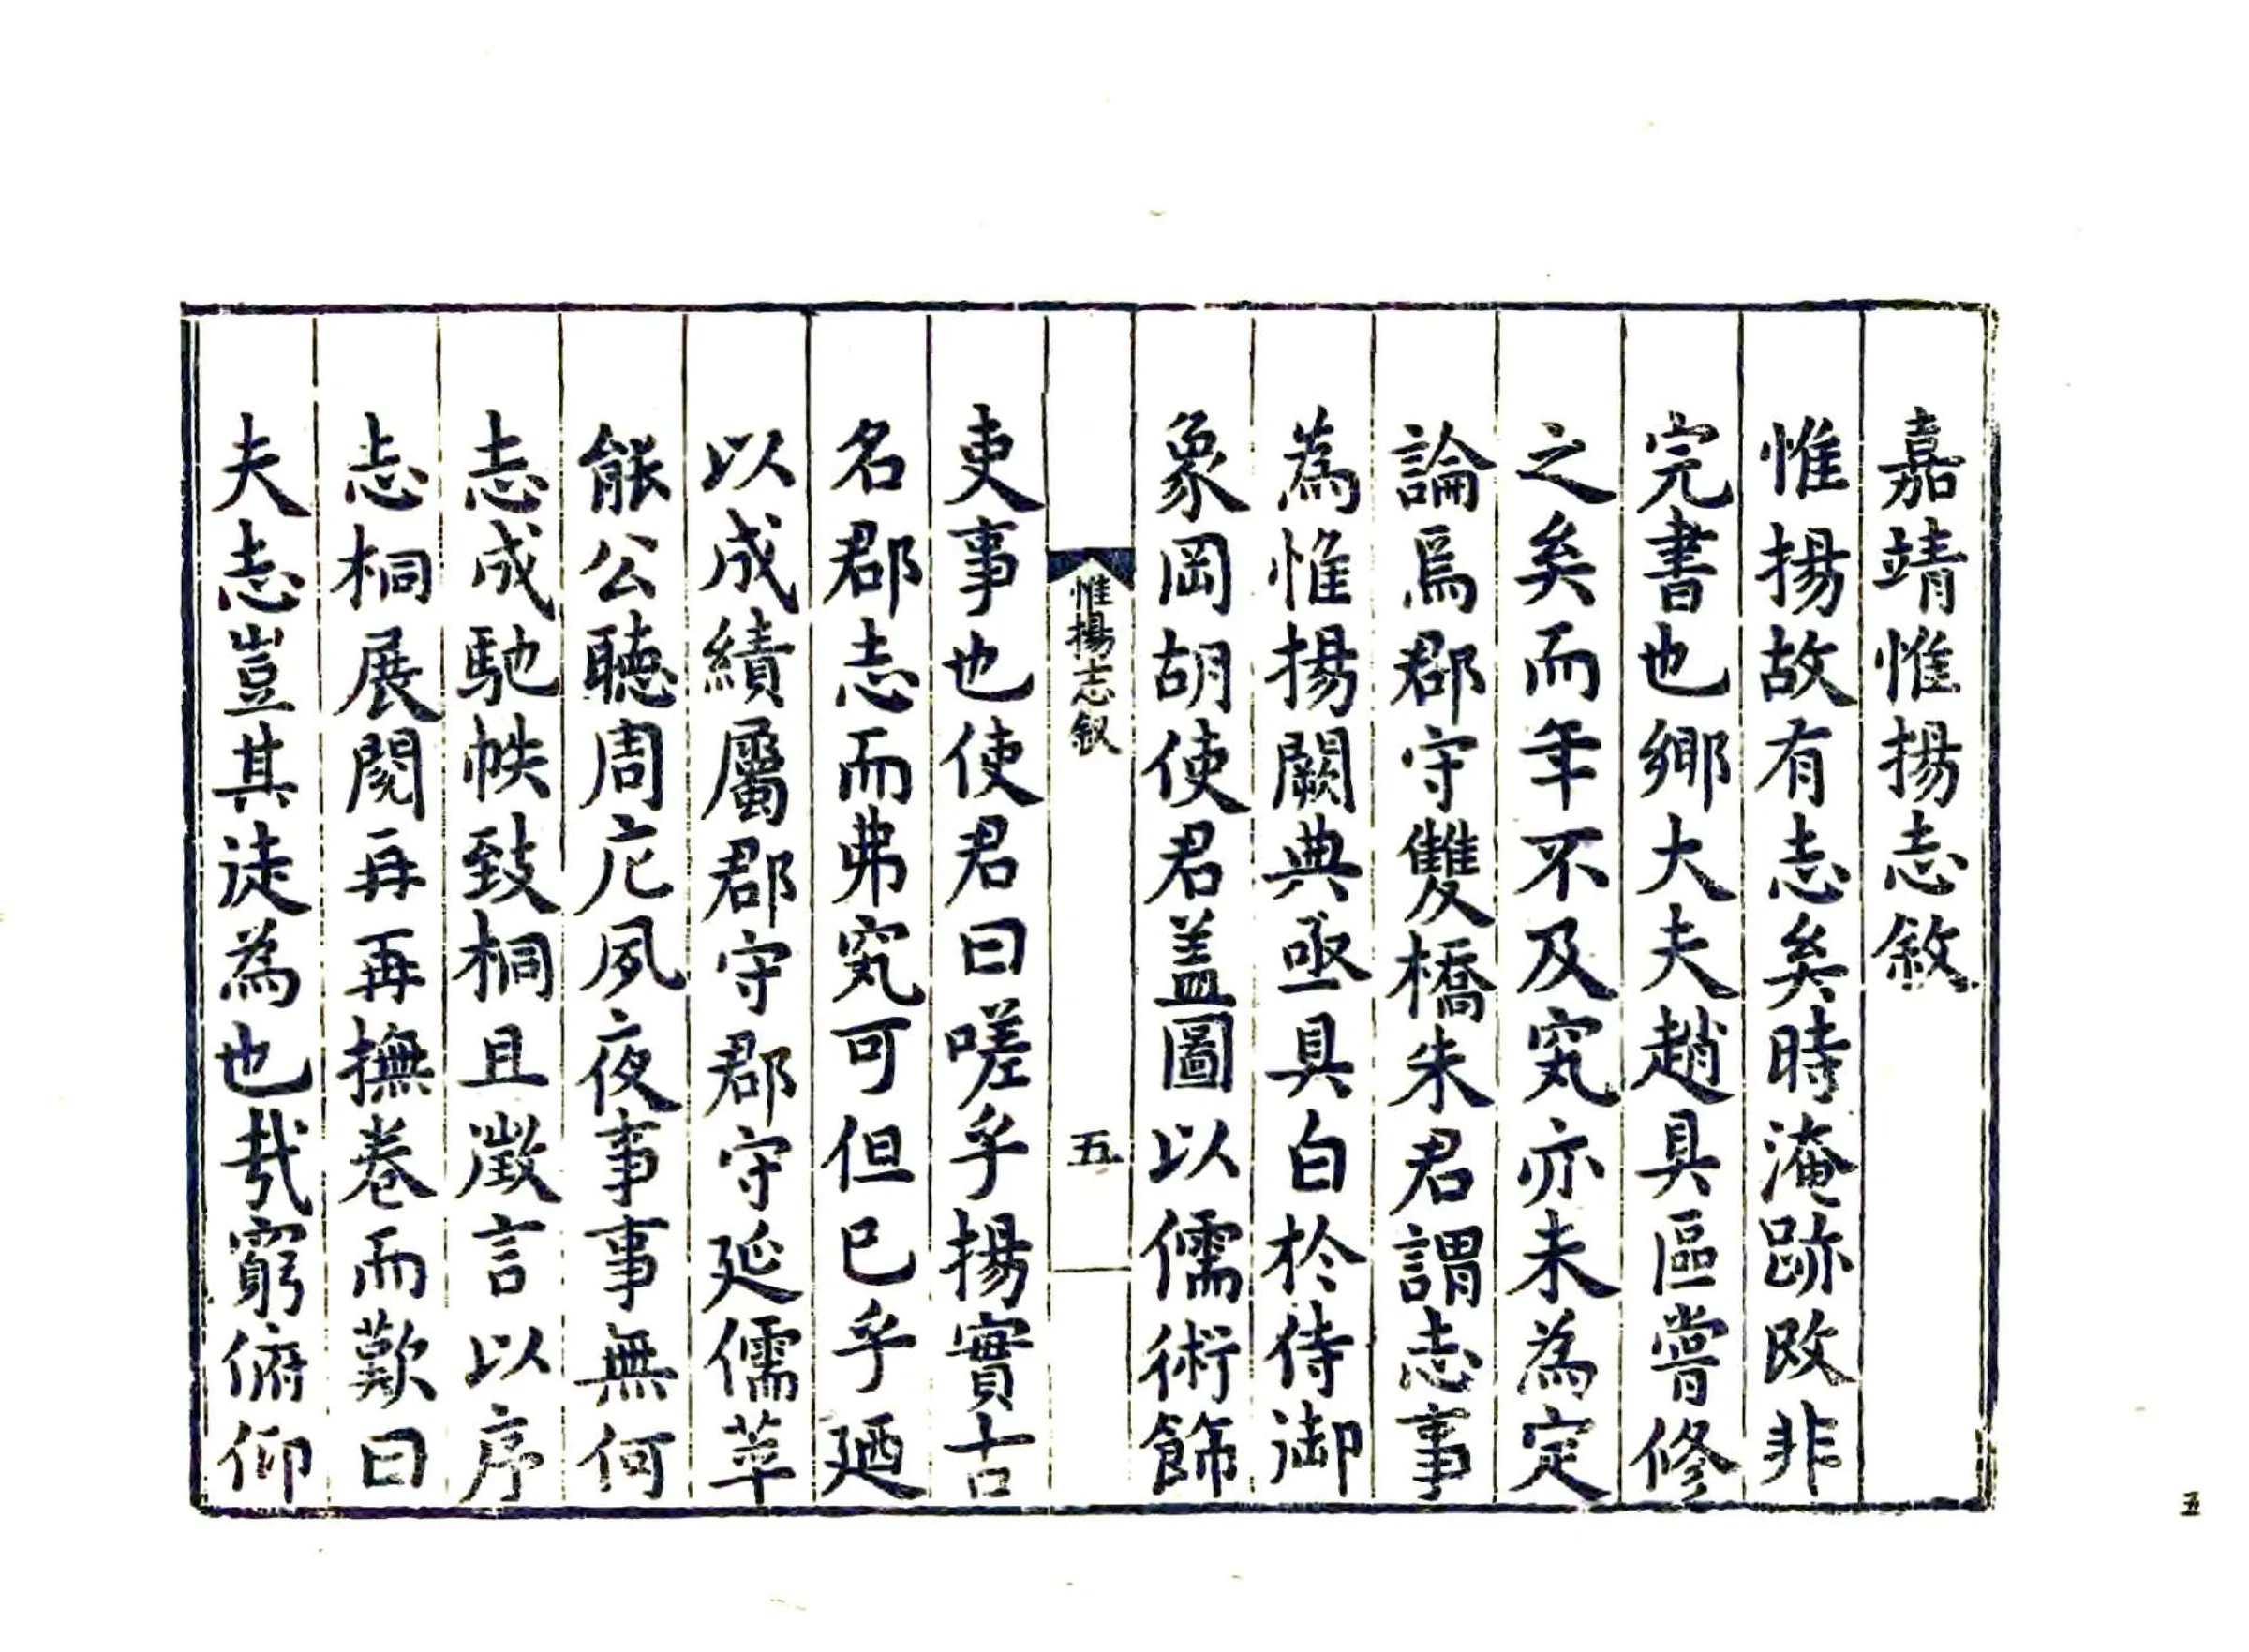 嘉靖惟揚志敘
惟揚故有志矣時淹跡改非
完書也鄉大夫趙具區嘗修
之矣而年不及究亦未為定
論焉郡守雙橋朱君謂志事
為惟揚闕典亟具白於侍御
象岡胡使君盖圖以儒術飾
惟揚志叙
五
吏事也使君曰嗟乎揚實古
名郡志而弗究可但已乎廼
以成績屬郡守郡守延儒萃
能公聽周充夙夜事事無何
志成馳帙致桐且徵言以序
志桐展閱再再撫卷而歎曰
夫志豈其徒為也哉窮俯仰
五